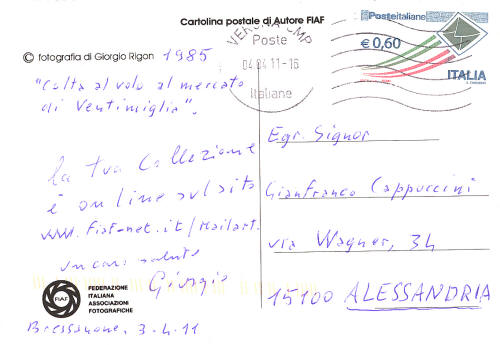 Cartolina postale di Autore FIAF
© fotografia di Giorgio Rigon 1985
"Colta al volo al mercato
di Ventimiglia".
la tua Collezione
è on line sul sito
www.fiaf-net.it/Mailart.
un caro saluto
Giorgio
FIAF
FEDERAZIONE
ITALIANA
ASSOCIAZIONI
FOTOGRAFICHE
Bressanone, 3.4.11
VERONA CMP
Poste
04.04.11-16
Italiane
Posteitaliane
€ 0,60
ITALIA
Egr. Signor
Gianfranco Cappuccini
via Wagner, 34
15100 ALESSANDRIA